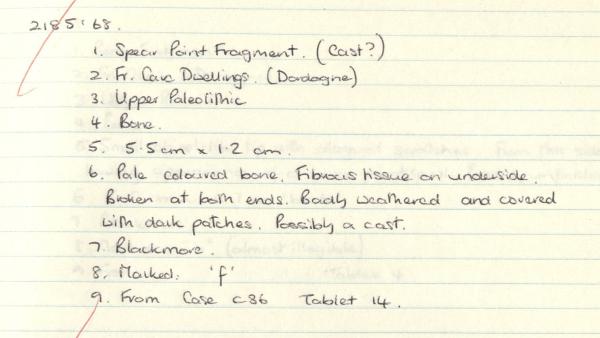 2185:68.
1. Spear Point Fragment. (Cast?)
2. Fr. Cave Dwellings. (Dordogne)
3. Upper Paleolithic
4. Bone.
5. 5.5cm x 1.2 cm.
6. Pale coloured bone. Fibrous tissue on underside.
Broken at both ends. Badly weathered and covered
with dark patches. Possibly a cast.
7. Blackmore.
8. Marked: 'f'
9. From Case C36 Tablet 14.